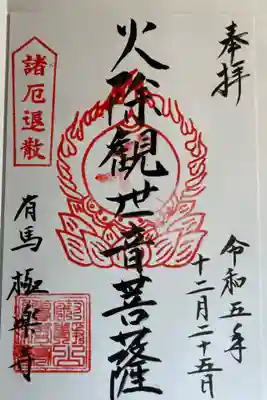 奉拝
令和五年
十二月二十五日
火除観世音菩薩
諸厄退散
有馬 極楽寺